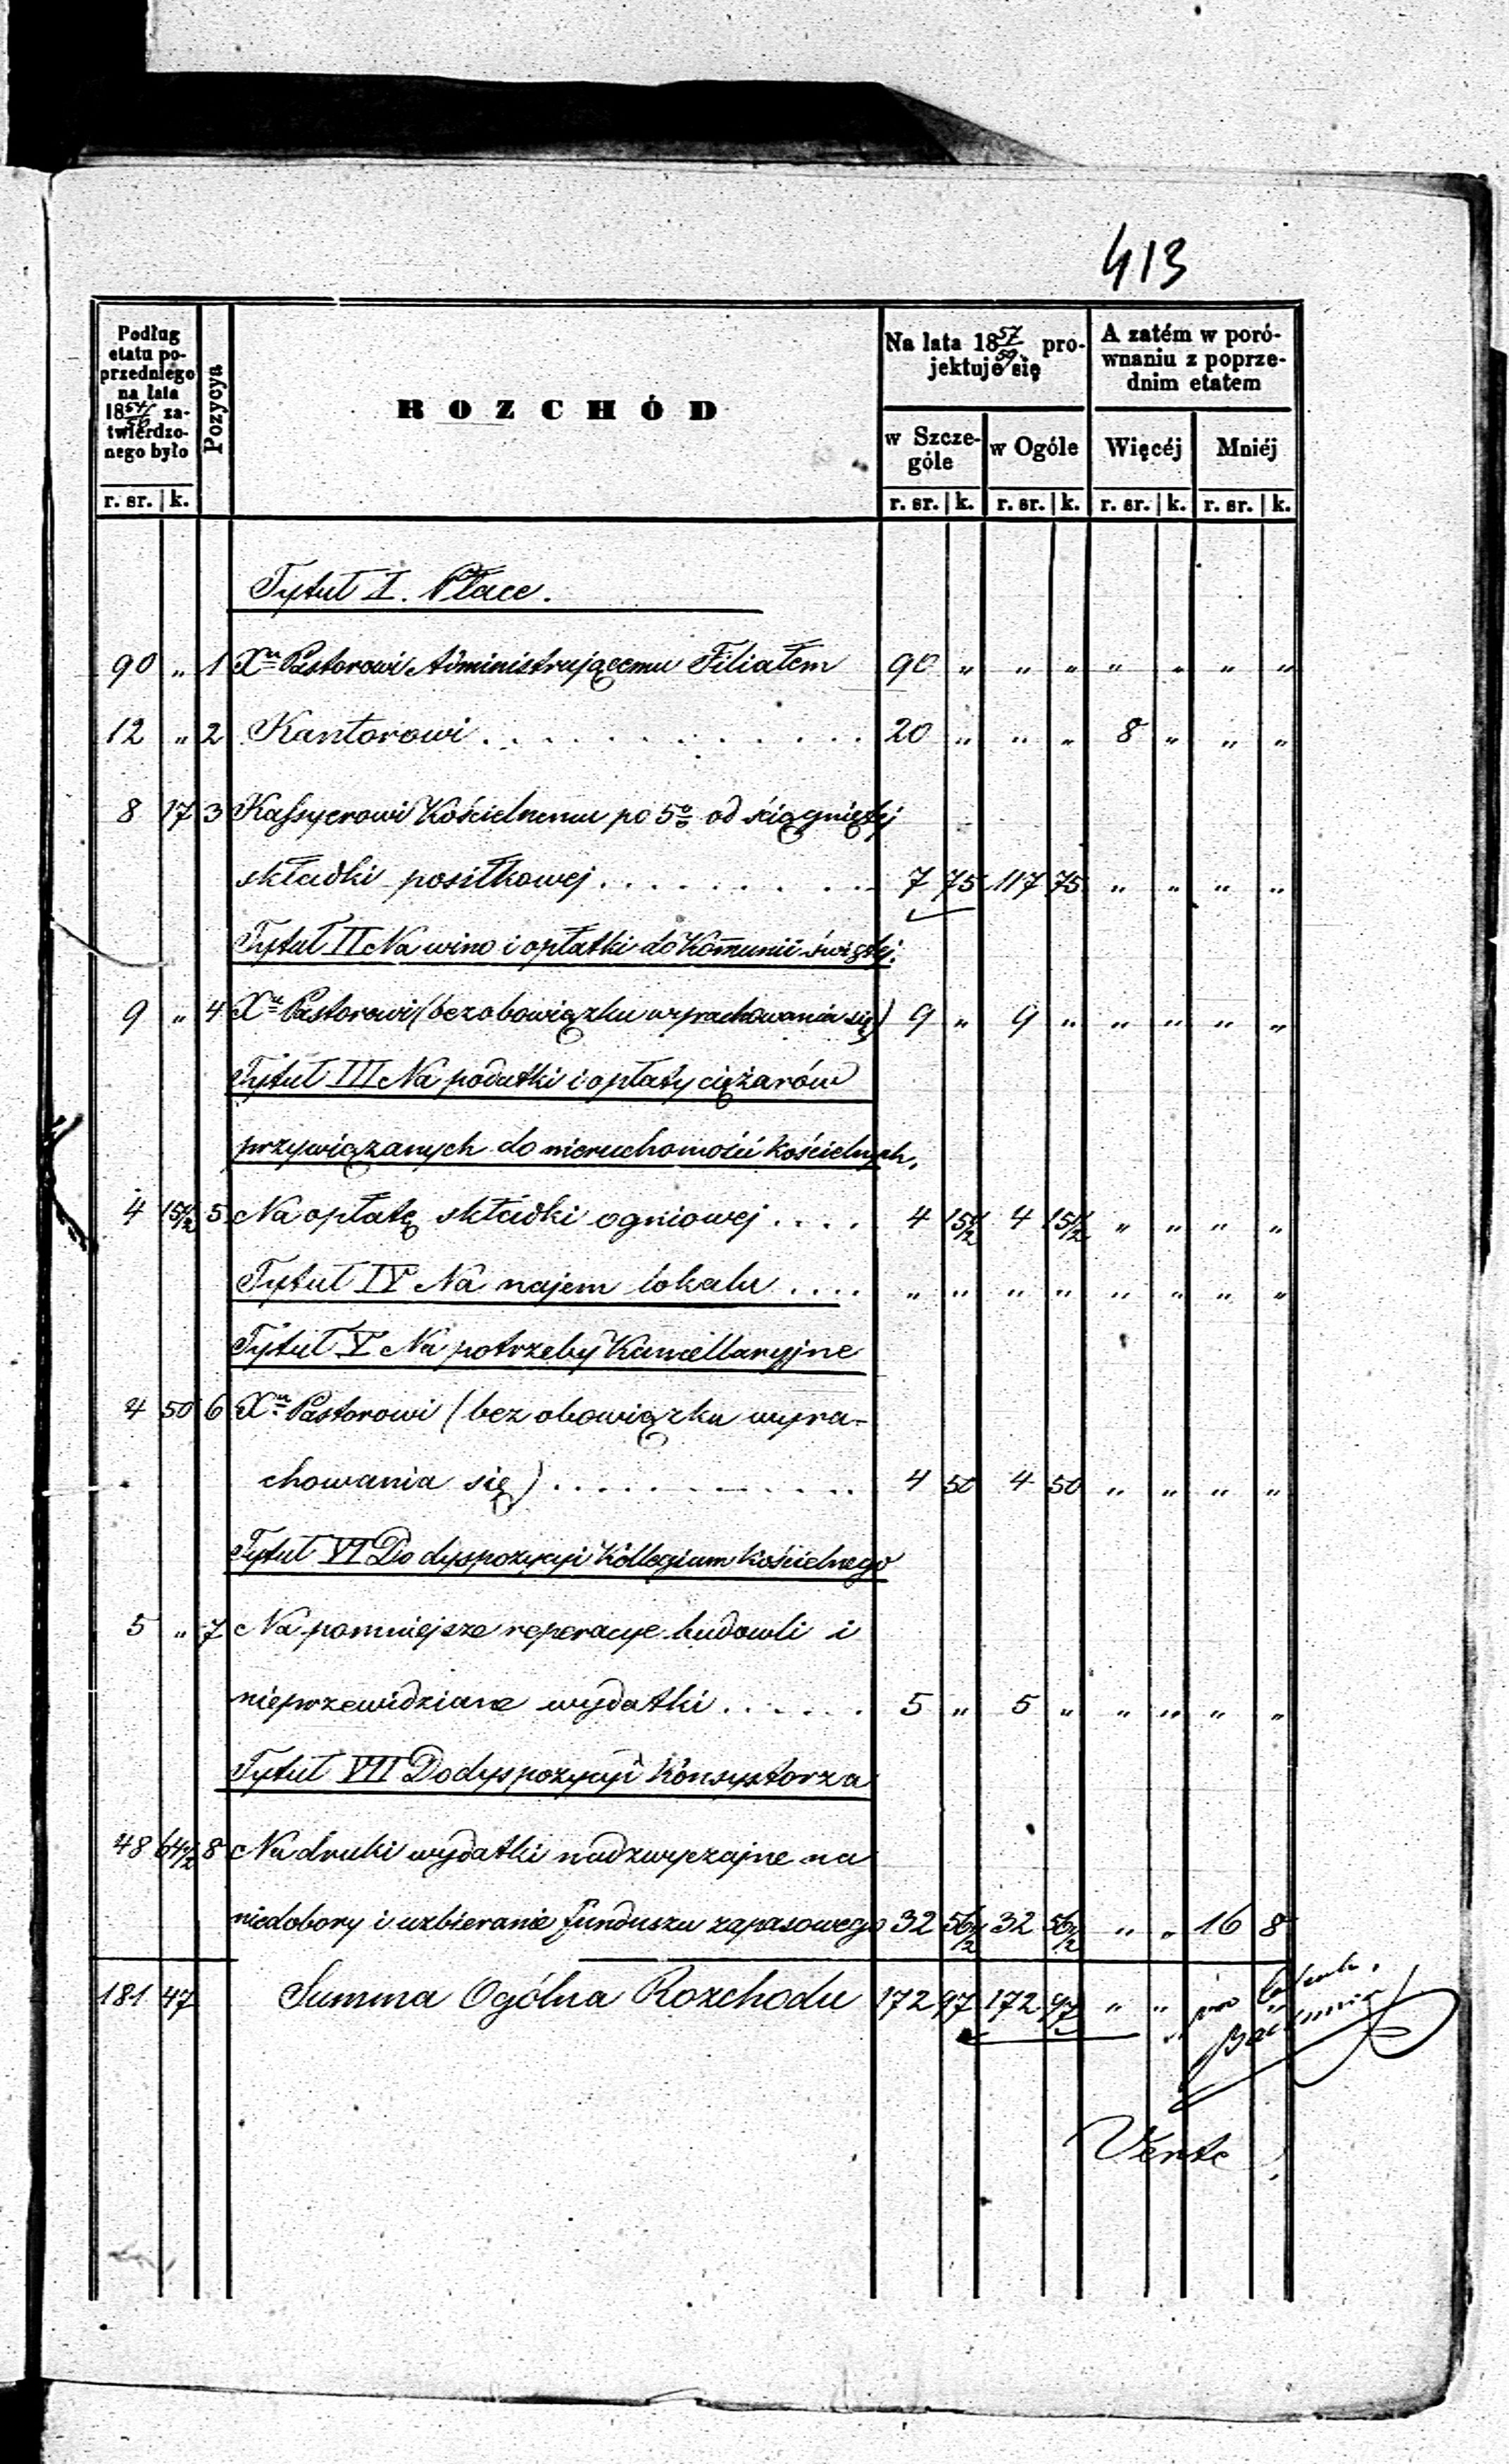 413
Podług etatu poprzedniego na lata 18 54/56 zatwierdzonego było | Pozycya | ROZCHÓD | Na lata 18 57/59 projektuje się | A zatém w porównaniu z poprzednim etatem
w Szczególe | w Ogóle | Więcéj | Mniéj
r. sr. | k. | r. sr. | k. | r. sr. | k. | r. sr. | k. | r. sr. | k.
Tytuł I. Płace.
90 | " | 1 | Xu Pastorowi Administrującemu Filiałem | 90 | " | " | " | " | " | " | "
12 | " | 2 | Kantorowi . . . . . . . . . . . . | 20 | " | " | " | 8 | " | " | "
8 | 17 | 3 | Kassyerowi Kościelnemu po 5% od ściągniętej
składki posiłkowej . . . . . . . . . | 7 | 75 | 117 | 75 | " | " | " | "
Tytuł II Na wino i opłatki do Kom̄unii świętej.
9 | " | 4 | Xu Pastorowi (bez obowiązku wyrachowania się) | 9 | " | 9 | " | " | " | " | "
Tytuł III Na podatki i opłaty ciężarów
przywiązanych do nieruchomości kościelnych.
4 | 15 1/2 | 5 | Na opłatę składki ogniowej . . . . | 4 | 15 1/2 | 4 | 15 1/2 | " | " | " | "
Tytuł IV Na najem lokalu . . . . | " | " | " | " | " | " | " | "
Tytuł V Na potrzeby Kancellaryjne
4 | 50 | 6 | Xu Pastorowi (bez obowiązku wyra-
chowania się) . . . . . . . . . . . | 4 | 50 | 4 | 50 | " | " | " | "
Tytuł VI Do dyspozycyi Kollegium Kościelnego
5 | " | 7 | Na pomniejsze reperacye budowli i
nieprzewidziane wydatki . . . . . . | 5 | " | 5 | " | " | " | " | "
Tytuł VII Do dyspozycyi Konsystorza
48 | 64 1/2 | 8 | Na druki wydatki nadzwyczajne na
niedobory i uzbieranie funduszu zapasowego | 32 | 56 1/2 | 32 | 56 1/2 | " | " | 16 | 8
181 | 47 | Summa Ogólna Rozchodu | 172 | 97 | 172 | 97 | " | "
Verte